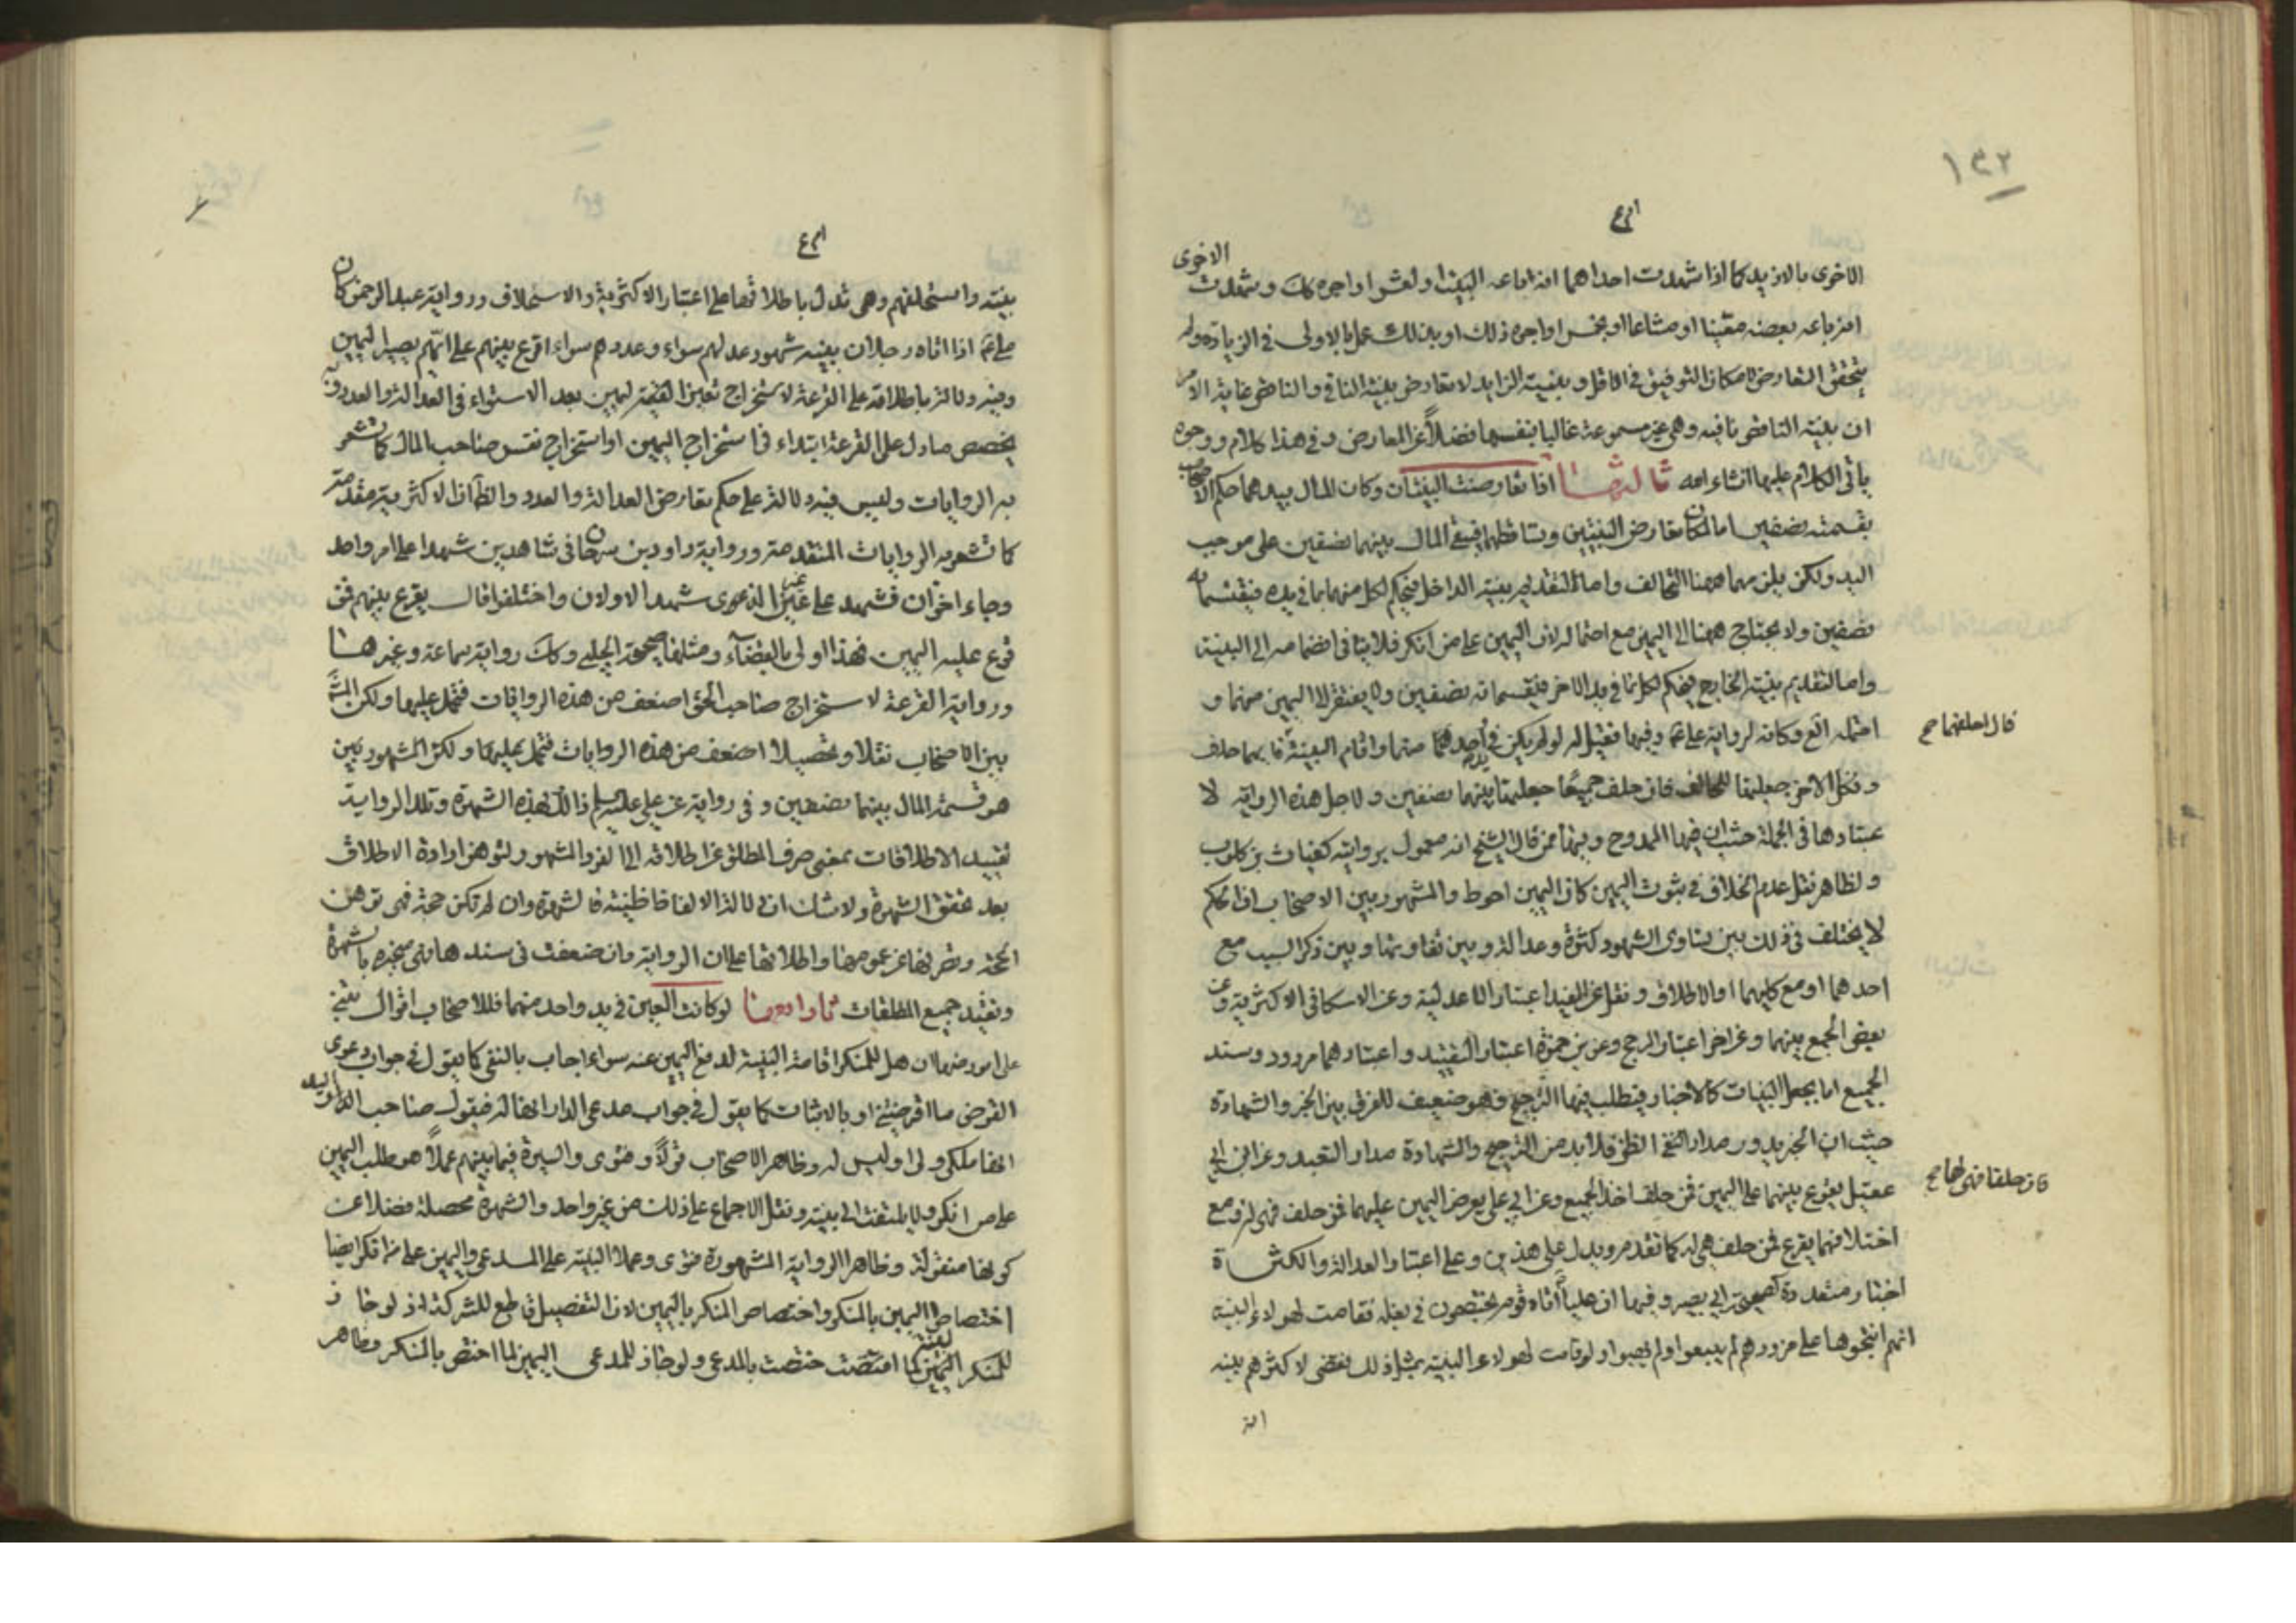 ١٣٢
الاخرى بالازيد كما اذا شهدت احداهما انه اباعه البيت او لعشر اواجره كك وشهدت الاخرى
انه باعه بعضه معينا او مشاعا او بخمس او اجره ذلك او بذلك عمل بالاولى في الزيادة ولم
يتحقق التعارض لامكان التوفيق في الاقل وببينة الزايد لا تعارض بينة النافي والناقص غاية الامر
ان بينة الناقص نافيه وهي غير مسموعة غالبا بنفسها فضلاً عن المعارض وفي هذا كلام ووجوه
ياتي الكلام عليها انشاء الله ثالثها اذا تعارضت البينتان وكان المال بيدهما حكم الاصحاب
بقسمته نصفين اما لمكان تعارض البينتين وتساقطهما فيبقى المال بينهما نصفين على موجب
اليد ولكن يلزمهما ههنا التحالف واما لتقديم بينة الداخل فيحكم لكل منهما بما في يده فيقتسمانه
نصفين ولا يحتاج ههنا الى اليمين مع احتماله لان اليمين على من انكر فلا ينافي انضمامه الى البينة
واما لتقديم بينة الخارج فيحكم لكل بما في يد الاخر فيقتسمانه نصفين ولا يفتقر الى اليمين منهما و
احتمله وكانه لرواية علي وفيها فقيل له لو لم يكن في يد احدهما منهما واقام البينة فايهما حلف
قال احلفهما صح
ونكل الاخر جعلتها للحالف فان حلف جميعا جعلتها بينهما نصفين ولاجل هذه الرواية لا
عتبارها في الجملة حيث ان فيها الممدوح وفيها من قال الشيخ انه معمول بروايته كغياث بن كلوب
ولظاهر نقل عدم الخلاف في ثبوت اليمين كان اليمين احوط والمشهور بين الاصحاب ان الحكم
لا يختلف في ذلك بين تساوي الشهود كثرة وعدالة وبين تفاوتها وبين ذكر السبب مع
احدهما او مع كليهما او الاطلاق ونقل عن المفيد اعتبار الاعدلية وعن الاسكافي الاكثرية وعن
بعض الجمع بينهما وعن اخر اعتبار المرجح وعن بن حمزة اعتبار التقييد واعتبارهما مردود وسند
الجميع اما بجعل البينات كالاخبار فيطلب فيها الترجيح وهو ضعيف للفرق بين الخبر والشهادة
حيث ان الخبر يدور مدار الظن فلا بد من الترجيح والشهادة مدار التعبد وعن ابن ابي
عقيل يقرع بينهما على اليمين فمن حلف اخذ الجميع وعن ابي علي يعرض اليمين عليهما فمن حلف فهي له ومع
فان حلفا فهي لهما صح
اختلافهما يقرع فمن حلف هي له كما تقدم ويدل على هذين وعلى اعتبار العدالة والكثرة
اخبار متعددة كصحيحة ابي بصير وفيها ان علياً اتاه قوم يختصمون في بغلة فقامت لهولاء البينة
انهم انتجوها على مزودهم لم يبيعوا ولم يهبوا ولو قامت لهولاء البينة بمثل ذلك فقضى لاكثرهم بينه
بينته واستحلفهم وهي تدل باطلاقها على اعتبار الاكثرية والاستحلاف ورواية عبد الرحمن كان
علي اذا اتاه رجلان ببينه شهود عدلهم سواء وعددهم سواء اقرع بينهم على ايهم يصير اليمين
وفيه دلالة باطلاقه على القرعة لاستخراج تعيين اليمين بعد الاستواء في العدالة والعدد وبه
يخصص ما دل على القرعة ابتداء في استخراج اليمين او استخراج نفس صاحب المال كما تشعر
به الروايات وليس فيه دلالة على حكم تعارض العدالة والعدد والظاهر ان الاكثرية مقدمة
كما تشعر به الروايات المتقدمة ورواية داود بن سرحان في شاهدين شهدا على امر واحد
وجاء اخران فشهدا على غير الذي شهد الاولان واختلفوا قال يقرع بينهم فمن
قرع عليه اليمين فهذا اولى بالقضآء ومثلها صحيحة الحلبي وكك رواية سماعة وغيرها
ورواية القرعة لاستخراج صاحب الحق اضعف من هذه الروايات فتحمل عليها ولكن المشهور
بين الاصحاب نقلا وتحصيلا اضعف من هذه الروايات فتحمل عليها ولكن المشهور بين
هو قسمة المال بينهما نصفين وفي رواية عن علي عليه السلم ذلك لهذه الشهرة وتلك الرواية
تقييد الاطلاقات بمعنى صرف المطلق عن اطلاقه الى الفرد المشهور ولتوهن ارادة الاطلاق
بعد تحقق الشهرة ولا شك ان دلالة الالفاظ ظنية فالشهرة وان لم تكن حجة فهي توهن
الحجة وتخرجها عن عمومها واطلاقها على ان الرواية وان ضعفت في سندها فهي منجبره بالشهرة
وتقيد جميع المطلقات رابعها لو كانت العين في يد واحد منهما فللاصحاب اقوال تبتني
على امور منها ان هل للمنكر اقامة البينة لدفع اليمين عنه سواء اجاب بالنفي كما يقول في جواب دعوى
القرض ما اقرضتني او بالاثبات كما يقول في جواب مدعي الدار انها له فيقول صاحب الدار واليد
انها ملكي ولي او ليس له وظاهر الاصحاب قولاً وفتوى والسيرة فيما بينهم عملاً هو طلب اليمين
على من انكر ولا يلتفت الى بينته ونقل الاجماع على ذلك من غير واحد والشهرة محصلة فضلا عن
كونها منقولة وظاهر الرواية المشهورة فتوى وعملا البينة على المدعي واليمين على من انكر ايضا
اختصاص اليمين بالمنكر واختصاص المنكر باليمين لان التفصيل قاطع للشركة اذ لو جاز
للمنكر البينة لما اختصت بالمدعي ولو جاز للمدعي اليمين لما اختص بالمنكر وظاهر